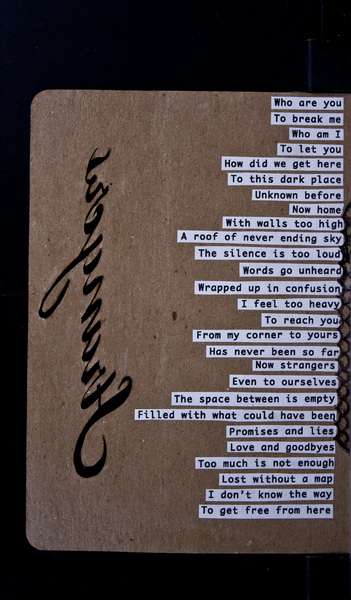 Who are you
To break me
Who am I
To let you
How did we get here
To this dark place
Unknown before
Now home
With walls too high
A roof of never ending sky
The silence is too loud
Words go unheard
Wrapped up in confusion
I feel too heavy
To reach you
From my corner to yours
Has never been so far
Now strangers
Even to ourselves
The space between is empty
Filled with what could have been
Promises and lies
Love and goodbyes
Too much is not enough
Lost without a map
I don't know the way
To get free from here